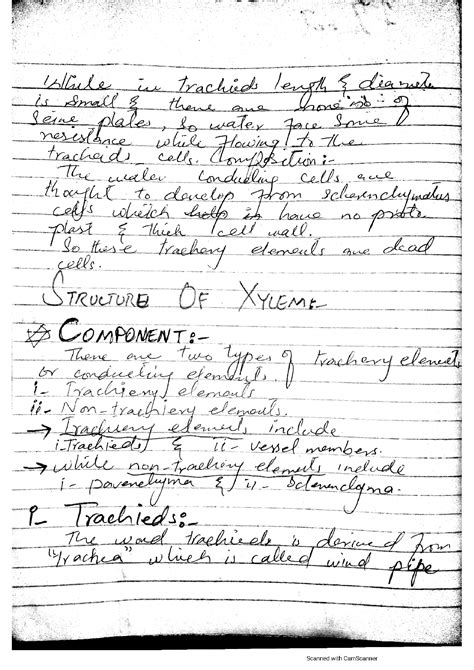 While in trachieds length & diameter
is small & there are more no of
Seive plates, So water face Some
resistance while flowing to the
tracheids cells. Composition:-
The water conducting cells are
thought to develop from
cells which help in have no proto
plast & thick cell wall.
So these trachery elements are dead
cells.
STRUCTURE OF XYLEM:-
COMPONENT:-
There are two types of trachery elements
or conducting elements.
i- Trachiery elements
ii- Non-trachiery elements.
→ Trachiery elements include
i-Trachieds & ii- vessel members.
→ while non-trachery elements include
i- parenchyma & ii- Sclerenchyma.
i- Trachieds:-
The word trachieds is derived from
"Trachea" which is called wind pipe
Scanned with CamScanner